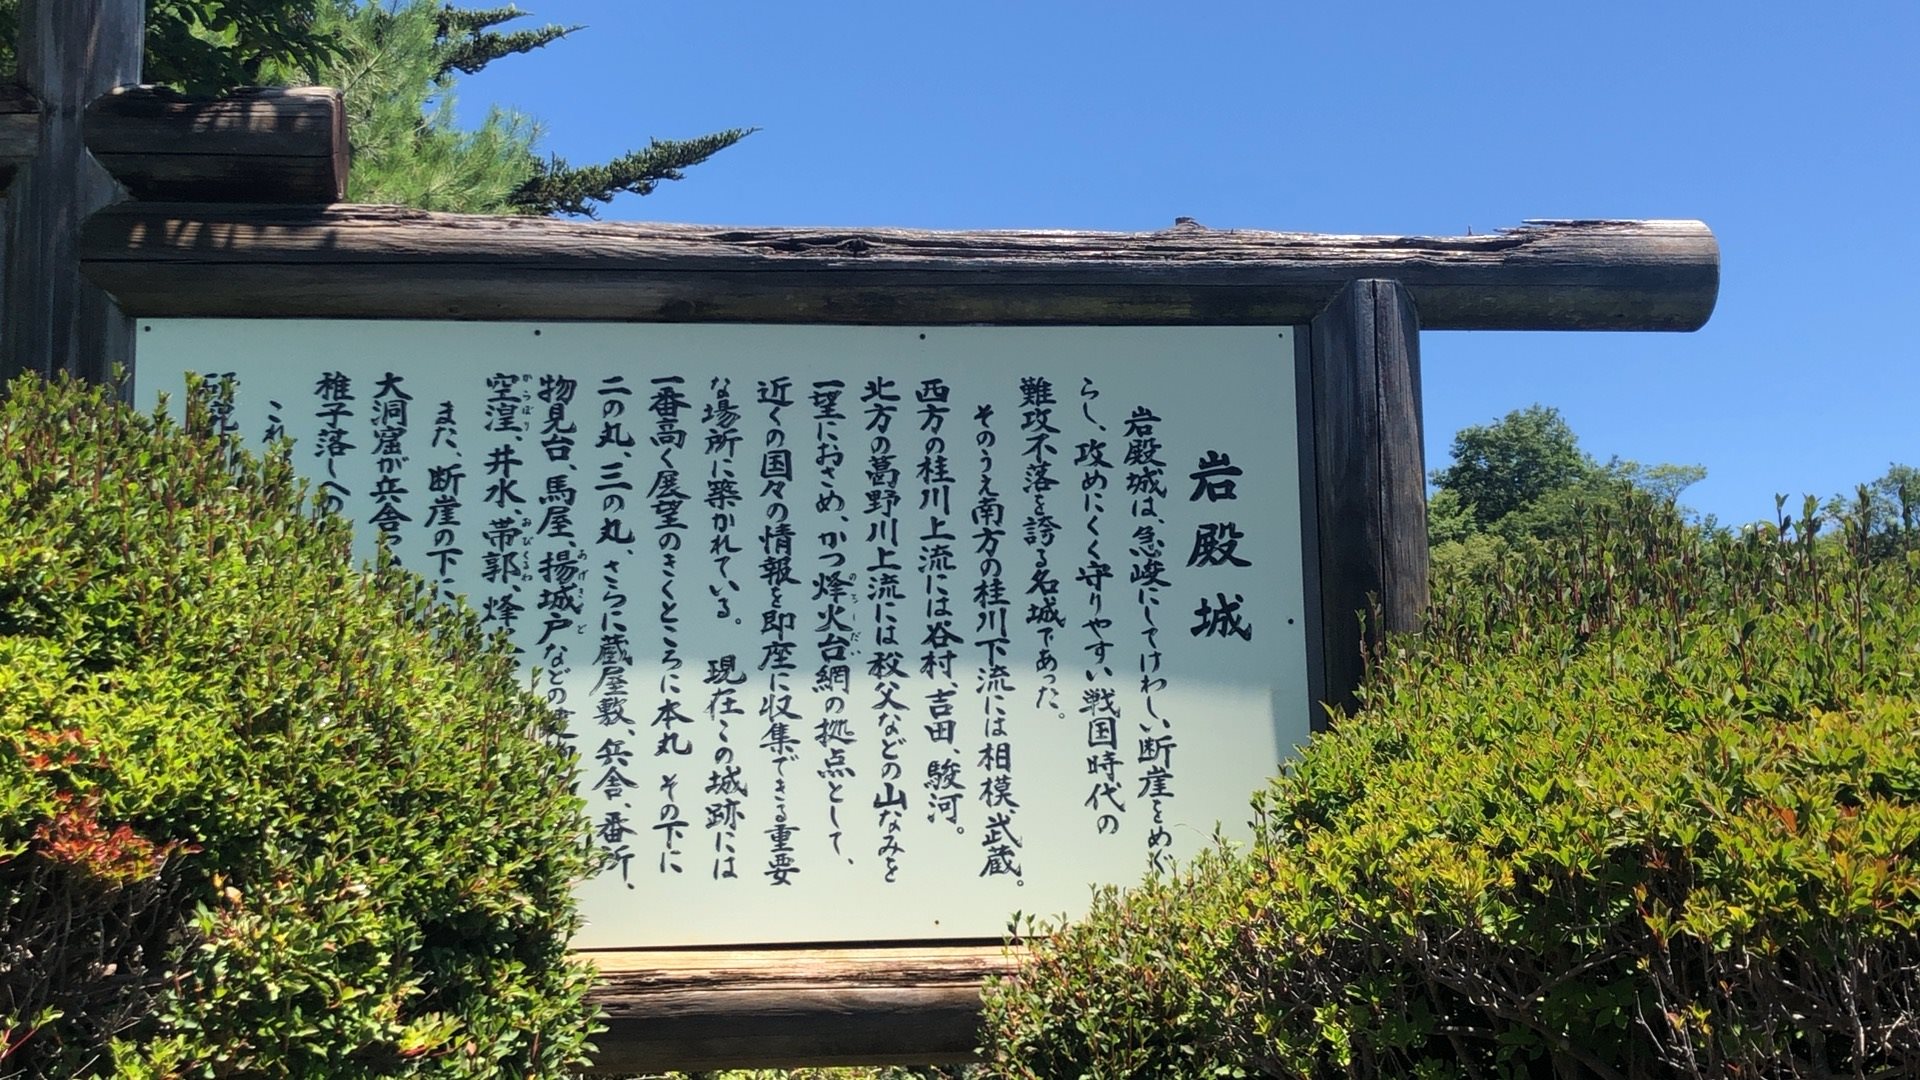 岩殿城
岩殿城は、急峻にしてけわしい断崖をめぐ
らし、攻めにくく守りやすい戦国時代の
難攻不落を誇る名城であった。
そのうえ南方の桂川下流には相模、武蔵。
西方の桂川上流には谷村、吉田、駿河。
北方の葛野川上流には秩父などの山なみを
一望におさめ、かつ烽火台網の拠点として、
近くの国々の情報を即座に収集できる重要
な場所に築かれている。現在この城跡には
一番高く展望のきくところに本丸 その下に
二の丸、三の丸、さらに蔵屋敷、兵舎、番所、
物見台、馬屋、揚城戸などの
空湟、井水、帯郭、烽
また、断崖の下に
大洞窟が兵舎
稚子落しへの
これ
研究